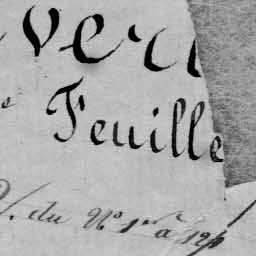 ver
e Feuille
V. du N° 1er à 124